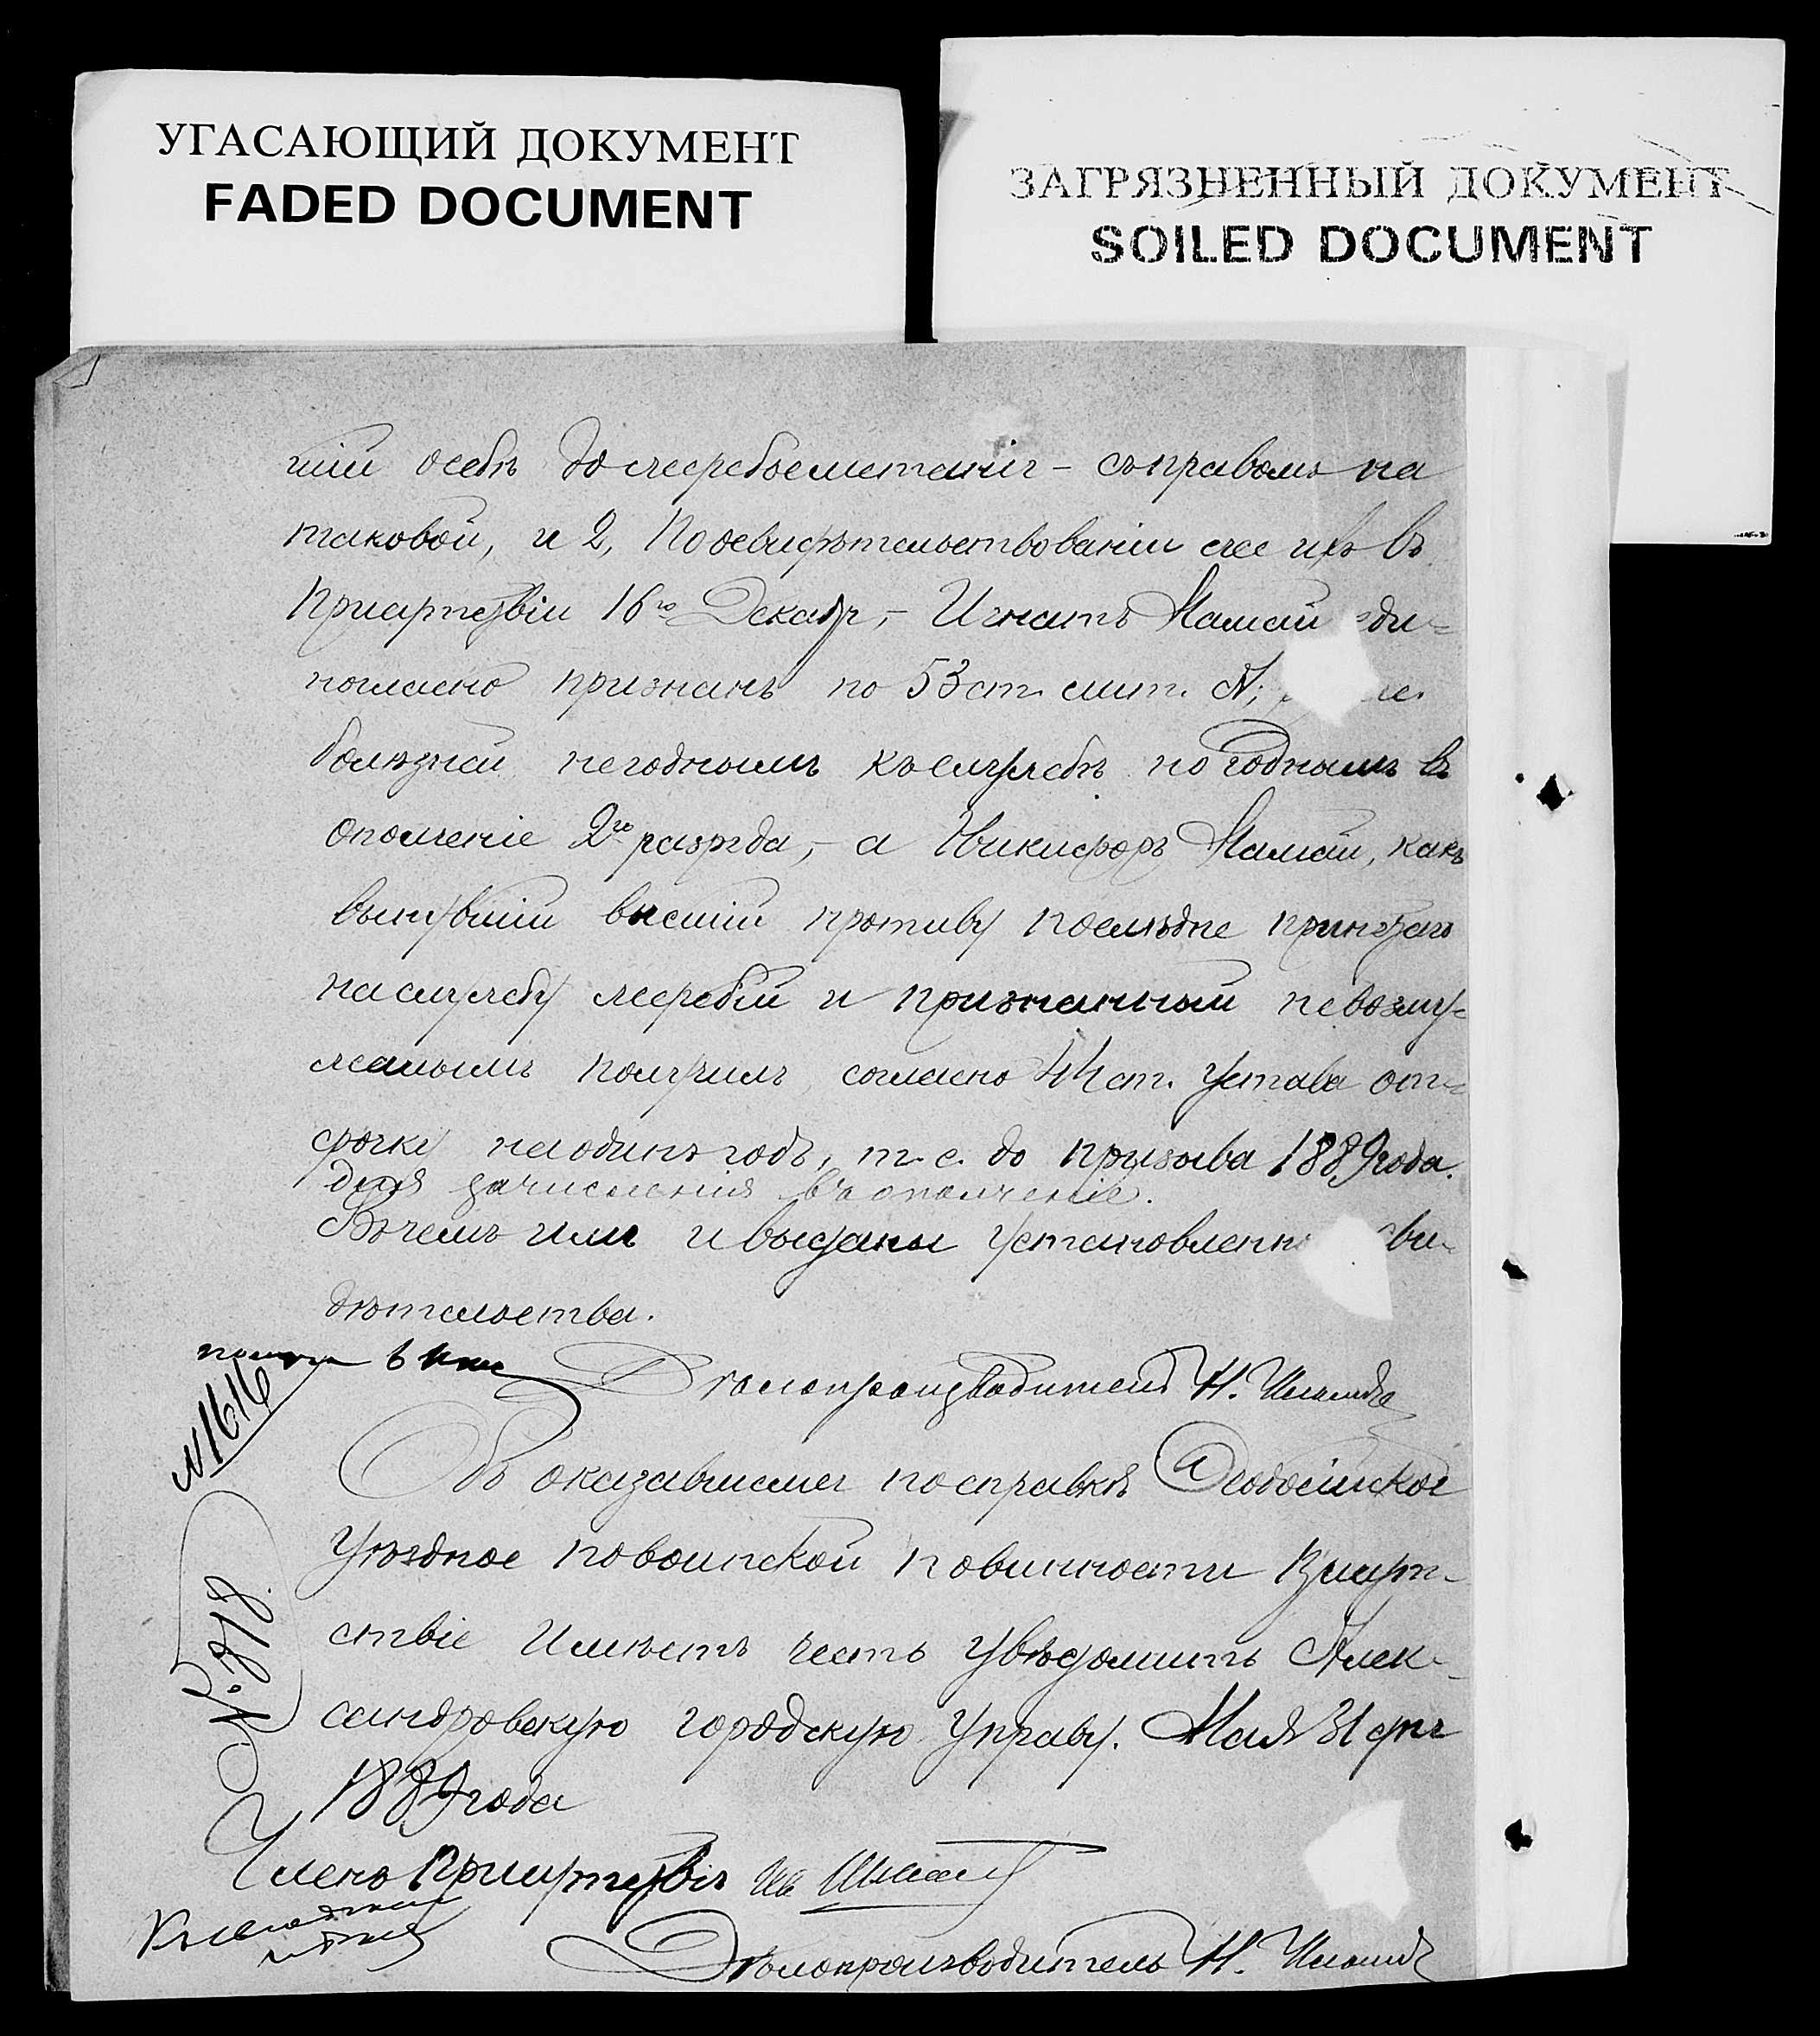 УГАСАЮЩИЙ ДОКУМЕНТ
FADED DOCUMENT
ЗАГРЯЗНЕННЫЙ ДОКУМЕНТ
SOILED DOCUMENT
до жеребьеметанія – съ правомъ на
таковой, и 2, По освидѣтельствованіи же ихъ въ
Присутствіи 16го Декабря, – Игнатъ Мамай еди-
погласно признанъ по 53 ст. лит. А,
болѣзней негоднымъ къ службѣ но годнымъ въ
ополченіе 2го разряда, – а Никифоръ Мамай, какъ
вынувшій высшій противу послѣдне принятаго
на службу жеребій и признанный невозму-
жалымъ получилъ, согласно 44 ст. Устава от-
срочку на одинъ годъ, т. е. до призыва 1889 года.
для зачисленія въ ополченіе.
Въ чемъ имъ и выданы установленны сви-
дѣтельства.
№ 1616
Дѣлопроизводитель Н.
Объ оказавшемся по справкѣ Ѳеодосійское
Уѣздное по воинской повинности Присут-
ствіе имѣетъ честь увѣдомить Алек-
сандровскую городскую Управу. Мая 31 дня
1889 года
№ 878.
Членъ Присутствія
Дѣлопроизводитель Н.